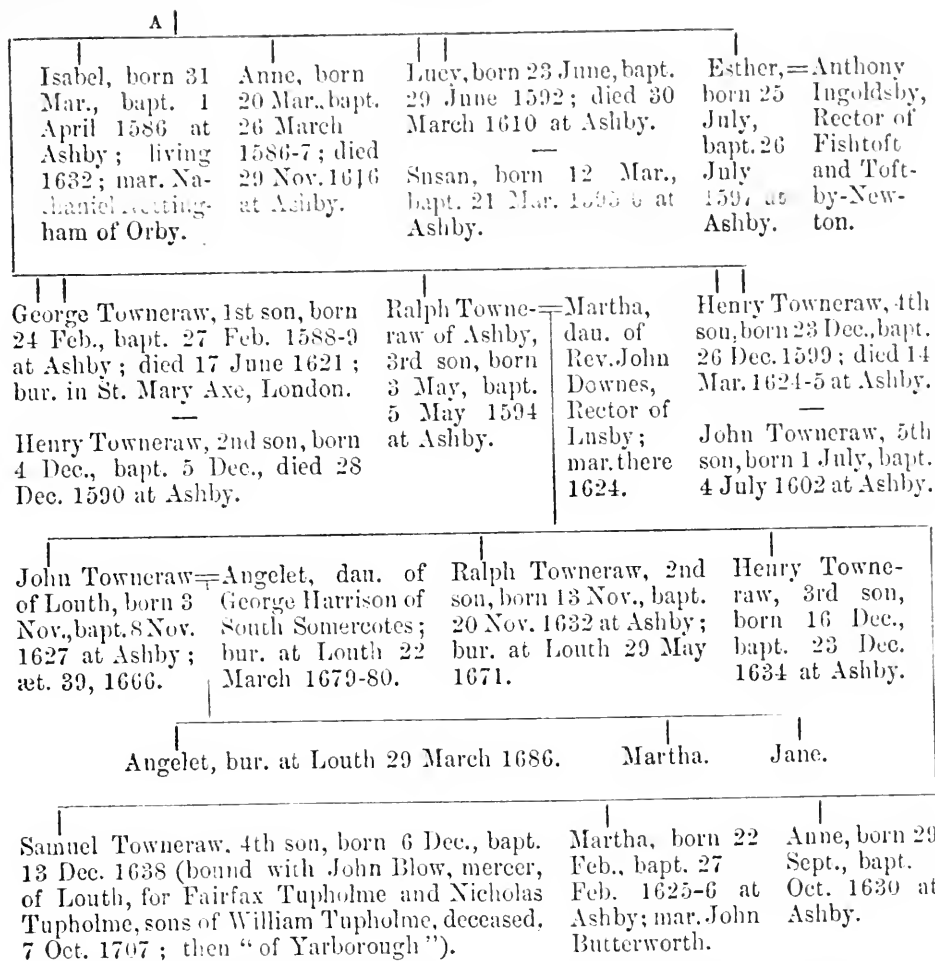 A
Isabel, born 31
Mar., bapt. 1
April 1586 at
Ashby; living
1632; mar. Na-
thaniel
ham of Orby.
Anne, born
20 Mar., bapt.
26 March
1586-7; died
29 Nov. 1616
at Ashby.
Lucy, born 23 June, bapt.
29 June 1592; died 30
March 1610 at Ashby.
—
Susan, born 12 Mar.,
bapt. 21 Mar. 1595-6 at
Ashby.
Esther,=
born 25
July,
bapt. 26
July
1597 at
Ashby.
Anthony
Ingoldsby,
Rector of
Fishtoft
and Toft-
by-New-
ton.
George Towneraw, 1st son, born
24 Feb., bapt. 27 Feb. 1588-9
at Ashby; died 17 June 1621;
bur. in St. Mary Axe, London.
—
Henry Towneraw, 2nd son, born
4 Dec., bapt. 5 Dec., died 28
Dec. 1590 at Ashby.
Ralph Towne-=
raw of Ashby,
3rd son, born
3 May, bapt.
5 May 1594
at Ashby.
Martha,
dau. of
Rev. John
Downes,
Rector of
Lusby;
mar. there
1624.
Henry Towneraw, 4th
son, born 23 Dec., bapt.
26 Dec. 1599; died 14
Mar. 1624-5 at Ashby.
—
John Towneraw, 5th
son, born 1 July, bapt.
4 July 1602 at Ashby.
John Towneraw=
of Louth, born 3
Nov., bapt. 8 Nov.
1627 at Ashby;
æt. 39, 1666.
Angelet, dau. of
George Harrison of
South Somercotes;
bur. at Louth 22
March 1679-80.
Ralph Towneraw, 2nd
son, born 13 Nov., bapt.
20 Nov. 1632 at Ashby;
bur. at Louth 29 May
1671.
Henry Towne-
raw, 3rd son,
born 16 Dec.,
bapt. 23 Dec.
1634 at Ashby.
Angelet, bur. at Louth 29 March 1686.
Martha.
Jane.
Samuel Towneraw, 4th son, born 6 Dec., bapt.
13 Dec. 1638 (bound with John Blow, mercer,
of Louth, for Fairfax Tupholme and Nicholas
Tupholme, sons of William Tupholme, deceased,
7 Oct. 1707; then "of Yarborough").
Martha, born 22
Feb., bapt. 27
Feb. 1625-6 at
Ashby; mar. John
Butterworth.
Anne, born 29
Sept., bapt.
Oct. 1630 at
Ashby.